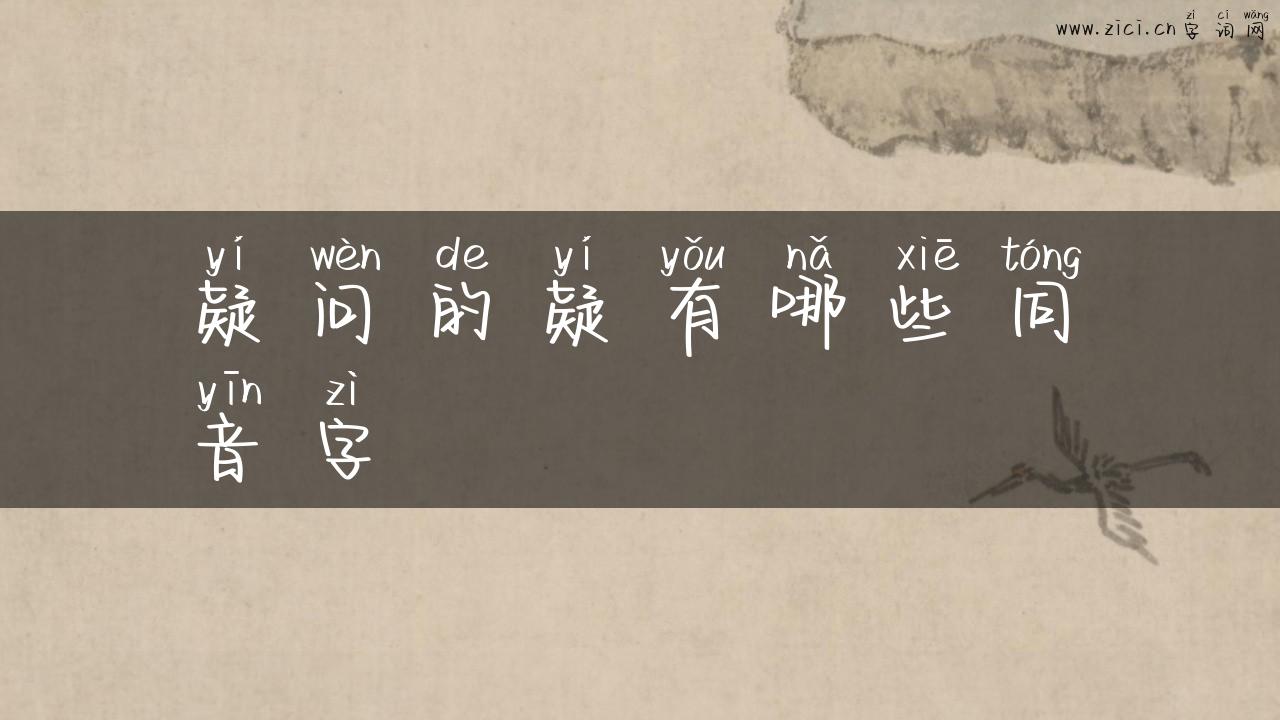 zì cí wǎng
www.zici.cn 字词网
yí wèn de yí yǒu nǎ xiē tóng
疑问的疑有哪些同
yīn zì
音字